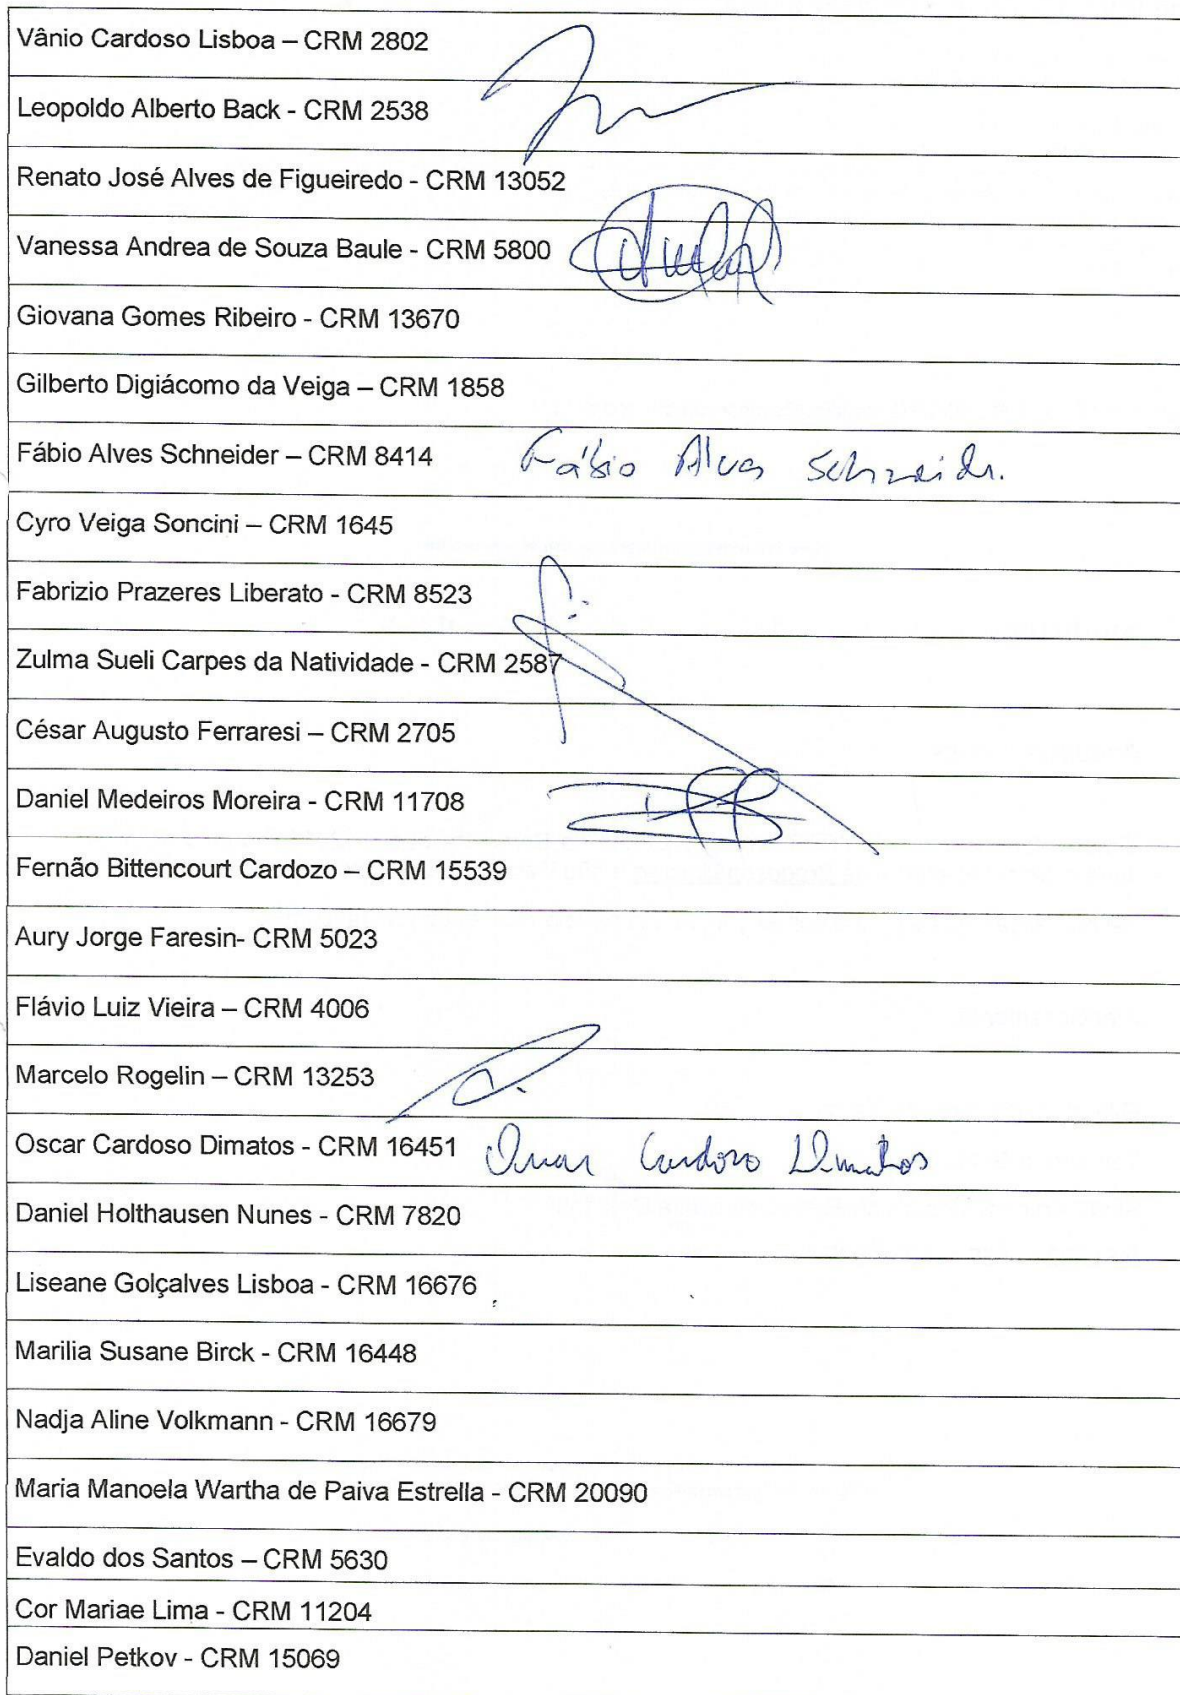 Vânio Cardoso Lisboa – CRM 2802
Leopoldo Alberto Back - CRM 2538
Renato José Alves de Figueiredo - CRM 13052
Vanessa Andrea de Souza Baule - CRM 5800
Giovana Gomes Ribeiro - CRM 13670
Gilberto Digiácomo da Veiga – CRM 1858
Fábio Alves Schneider – CRM 8414 Fábio Alves Schneider.
Cyro Veiga Soncini – CRM 1645
Fabrizio Prazeres Liberato - CRM 8523
Zulma Sueli Carpes da Natividade - CRM 2587
César Augusto Ferraresi – CRM 2705
Daniel Medeiros Moreira - CRM 11708
Fernão Bittencourt Cardozo – CRM 15539
Aury Jorge Faresin- CRM 5023
Flávio Luiz Vieira – CRM 4006
Marcelo Rogelin – CRM 13253
Oscar Cardoso Dimatos - CRM 16451 Oscar Cardoso Dimatos
Daniel Holthausen Nunes - CRM 7820
Liseane Golçalves Lisboa - CRM 16676
Marilia Susane Birck - CRM 16448
Nadja Aline Volkmann - CRM 16679
Maria Manoela Wartha de Paiva Estrella - CRM 20090
Evaldo dos Santos – CRM 5630
Cor Mariae Lima - CRM 11204
Daniel Petkov - CRM 15069